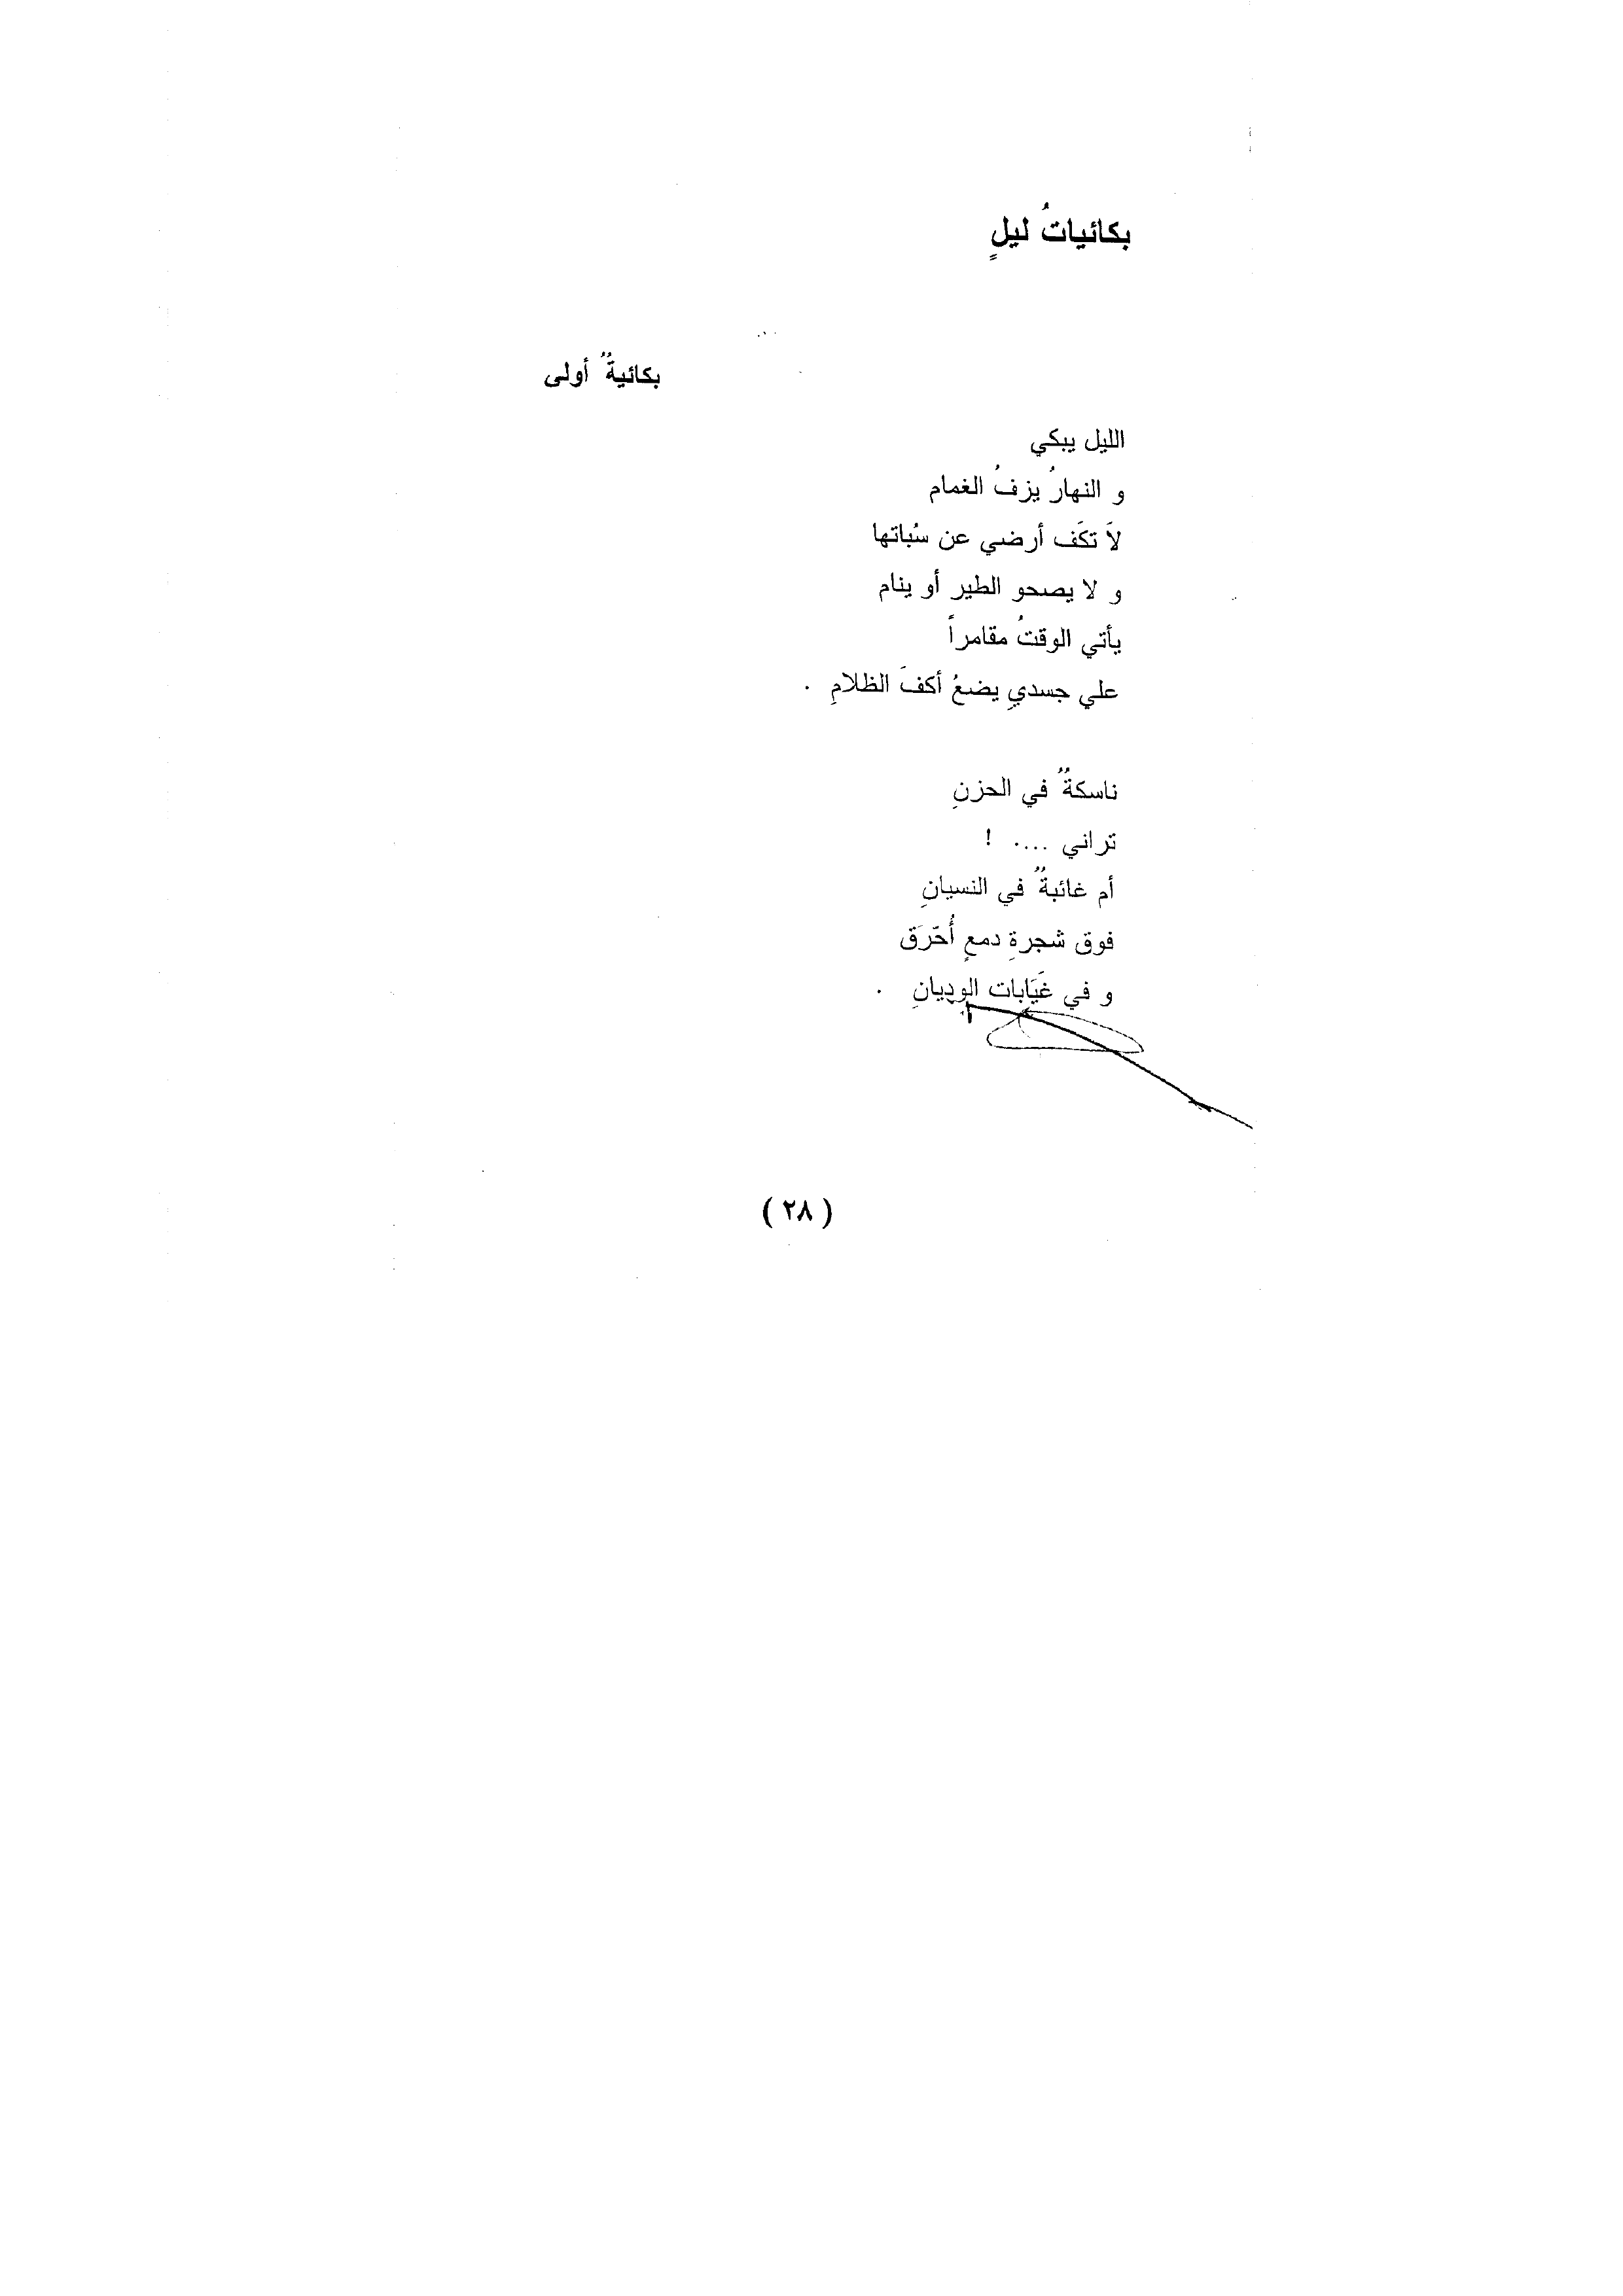 بكائياتُ ليلٍ
بكائيةٌ أولى
الليل يبكي
و النهارُ يزفُ الغمام
لاَ تكَف أرضي عن سُباتها
و لا يصحو الطير أو ينام
يأتي الوقتُ مقامراً
علي جسديِ يضعُ أكفَ الظلامِ .
ناسكةٌ في الحزنِ
تراني .... !
أم غائبةٌ في النسيانِ
فوق شجرةِ دمعٍ أُحّرَق
و في غَيَابات الوِديانِ .
( ٢٨ )